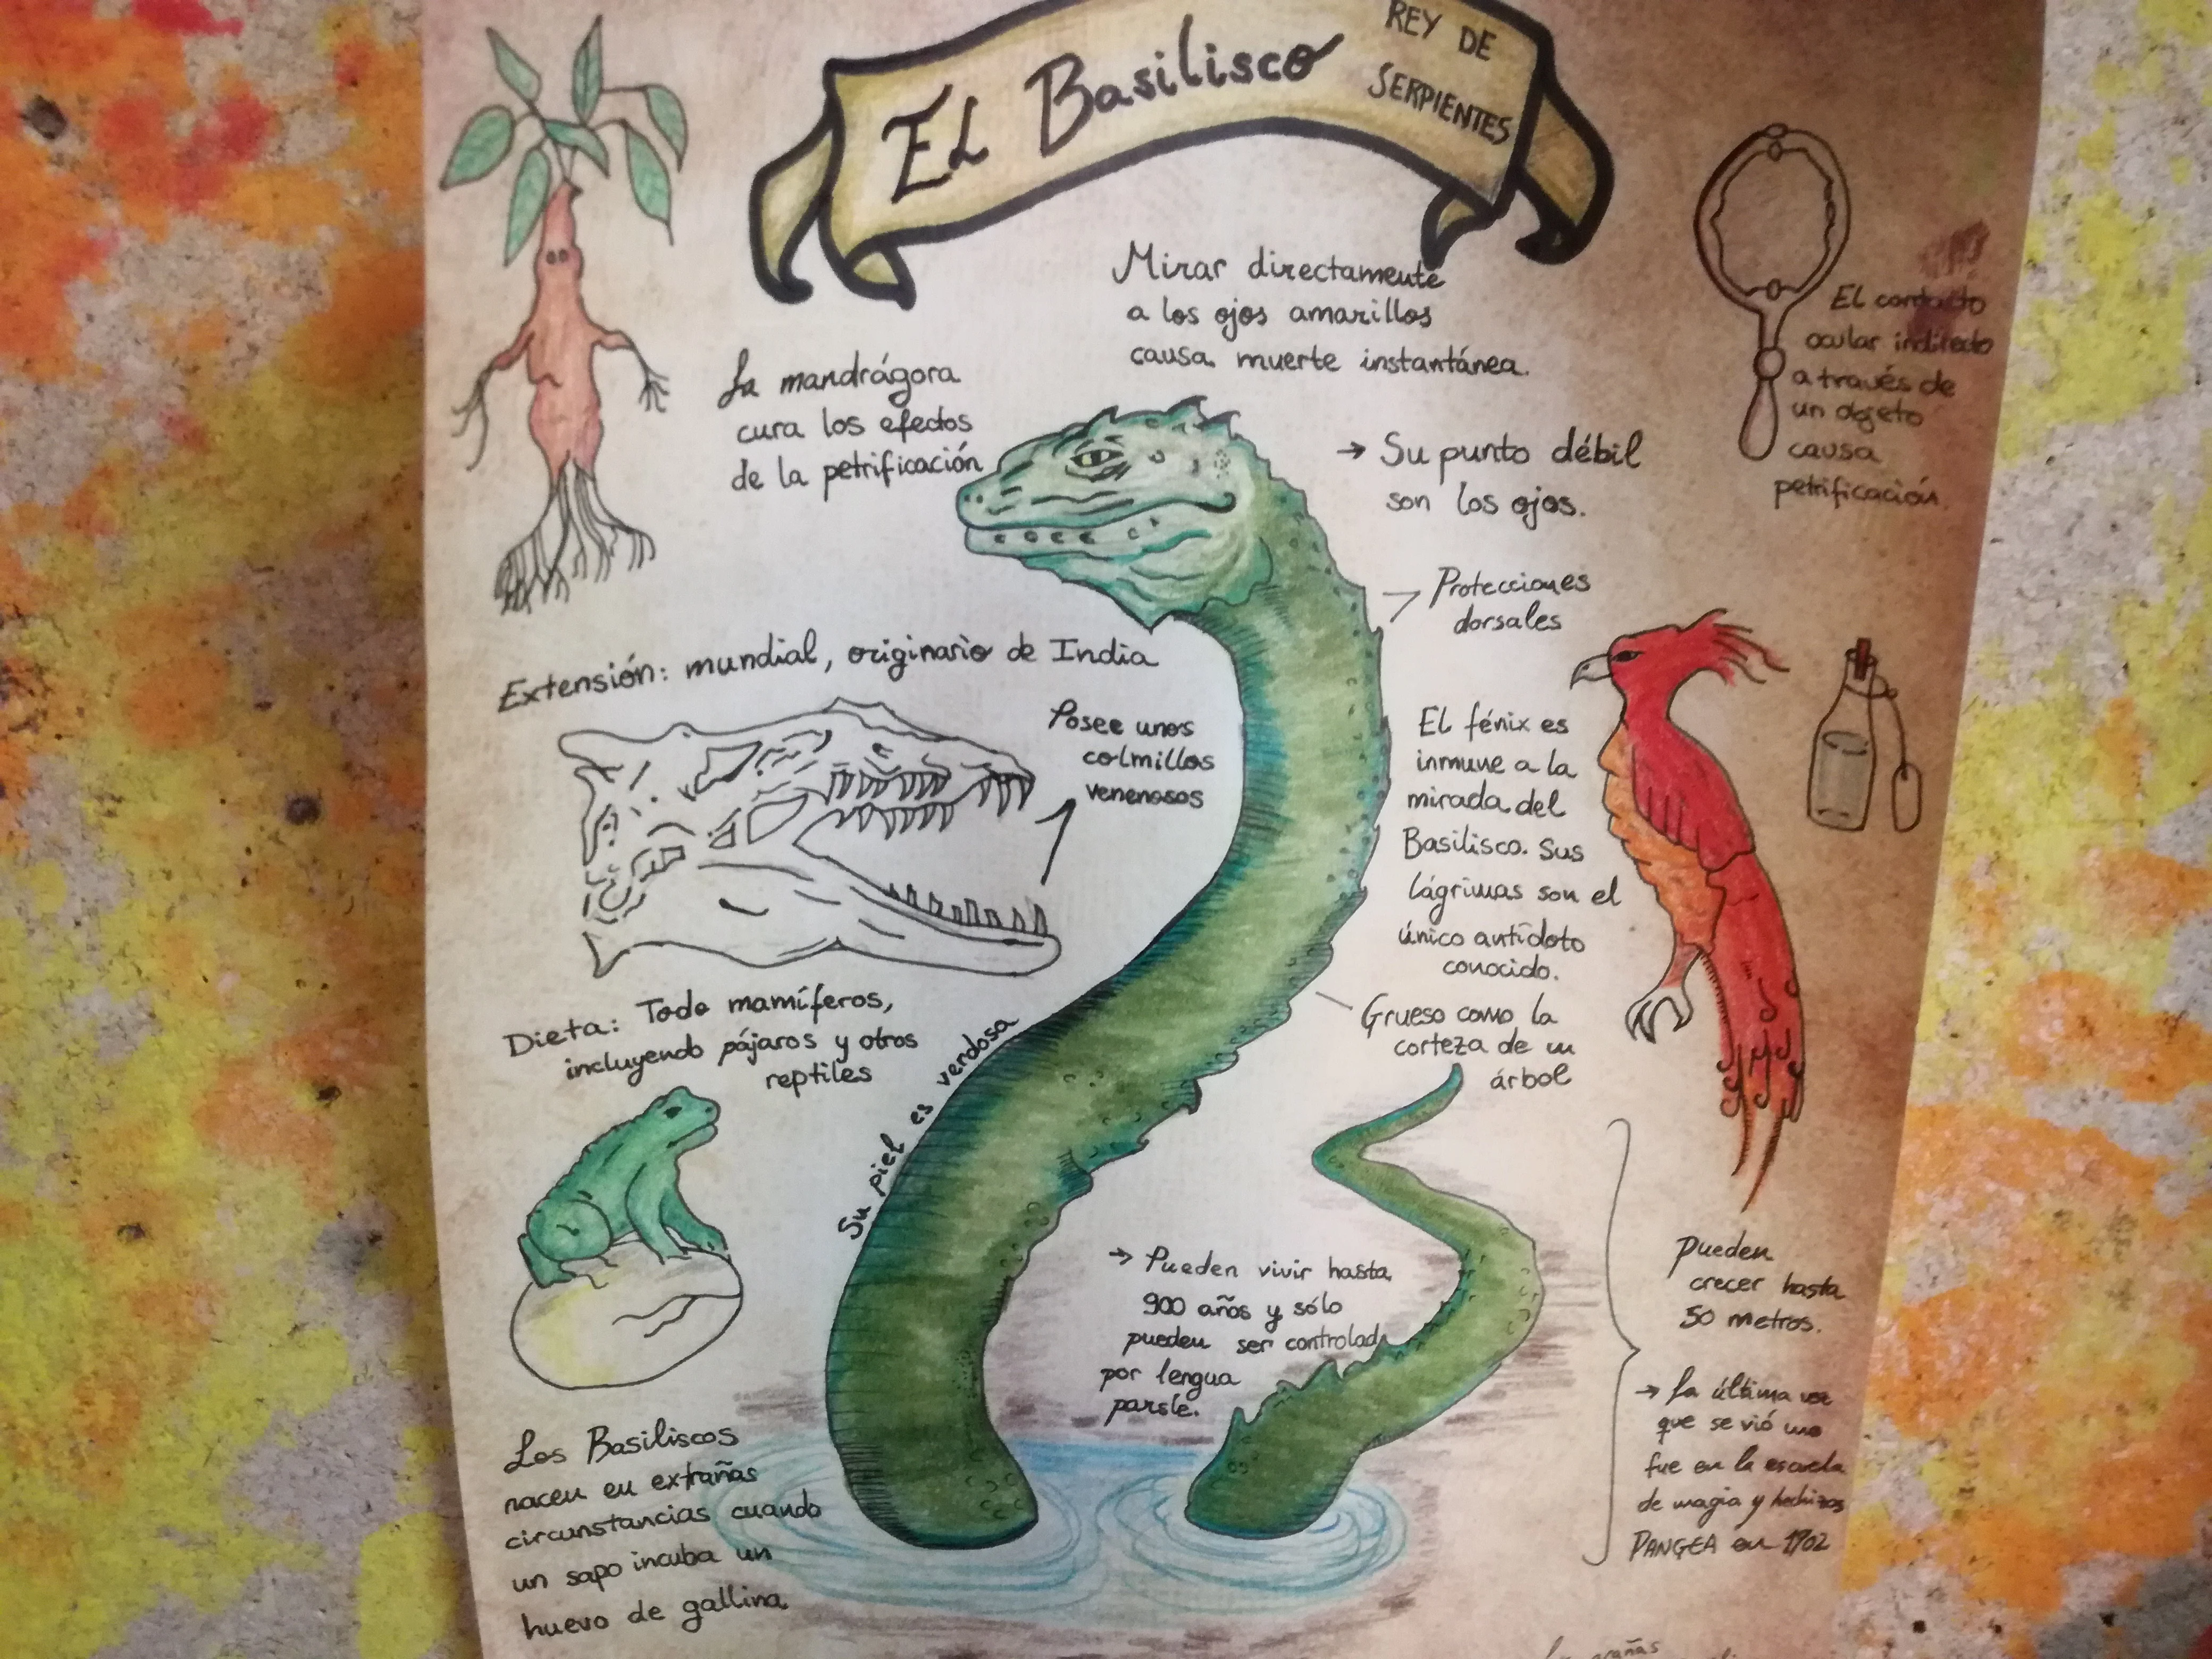 EL Basilisco
REY DE
SERPIENTES
Mirar directamente
a los ojos amarillos
causa muerte instantánea.
El contacto
ocular indirecto
a través de
un objeto
causa
petrificación
La mandrágora
cura los efectos
de la petrificación
→ Su punto débil
son los ojos.
Protecciones
dorsales
Extensión: mundial, originario de India
Posee unos
colmillos
venenosos
El fénix es
inmune a la
mirada del
Basilisco. Sus
lágrimas son el
único antídoto
conocido.
Dieta: Todo mamíferos,
incluyendo pájaros y otros
reptiles
Su piel es verdosa
Grueso como la
corteza de un
árbol
→ Pueden vivir hasta
900 años y sólo
pueden ser controlad
por lengua
parsle.
Pueden
crecer hasta
50 metros.
→ La última vez
que se vió uno
fue en la escuela
de magia y hechizos
PANGEA en 1702
Los Basiliscos
nacen en extrañas
circunstancias cuando
un sapo incuba un
huevo de gallina
arañas